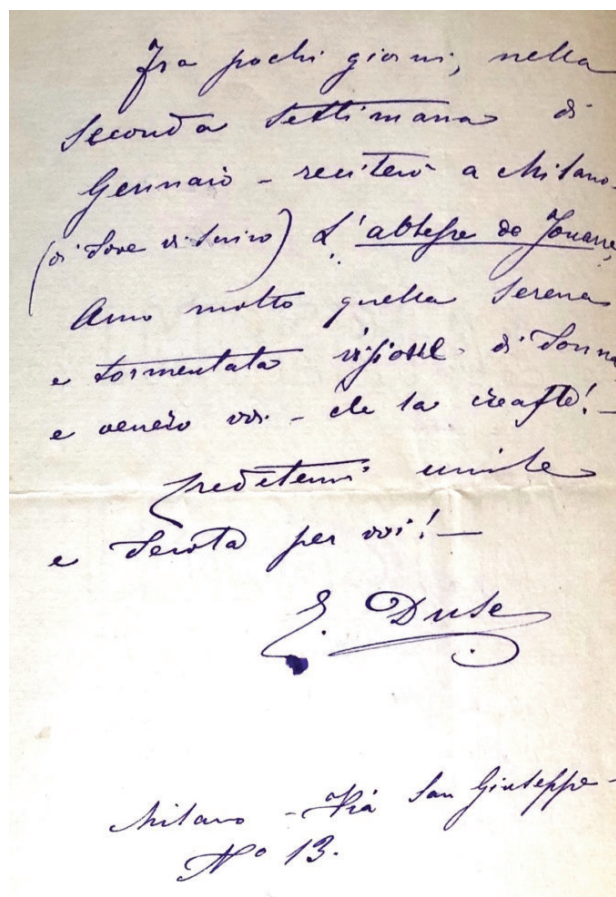 Fra pochi giorni, nella
seconda settimana di
Gennaio - reciterò a Milano
(di dove vi scrivo) L'abbesse de Jouarre,
Amo molto quella serena
e tormentata visione di donna
e venero voi - che la creaste! -
Credetemi umile
e devota per voi! -
E. Duse
Milano - Via San Giuseppe -
Nº 13.